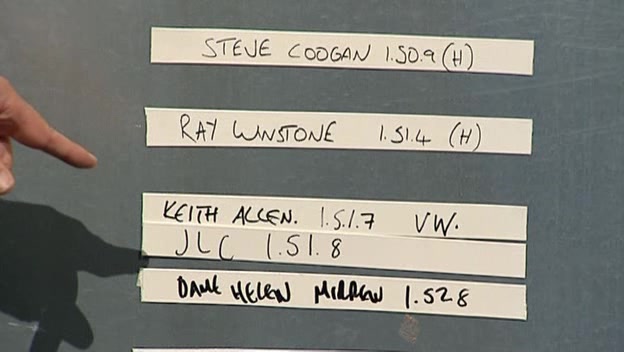 STEVE COOGAN 1.50.9 (H)
RAY WINSTONE 1.51.4 (H)
KEITH ALLEN. 1.51.7 VW.
JLC 1.51.8
DAME HELEN MIRREN 1.52 8